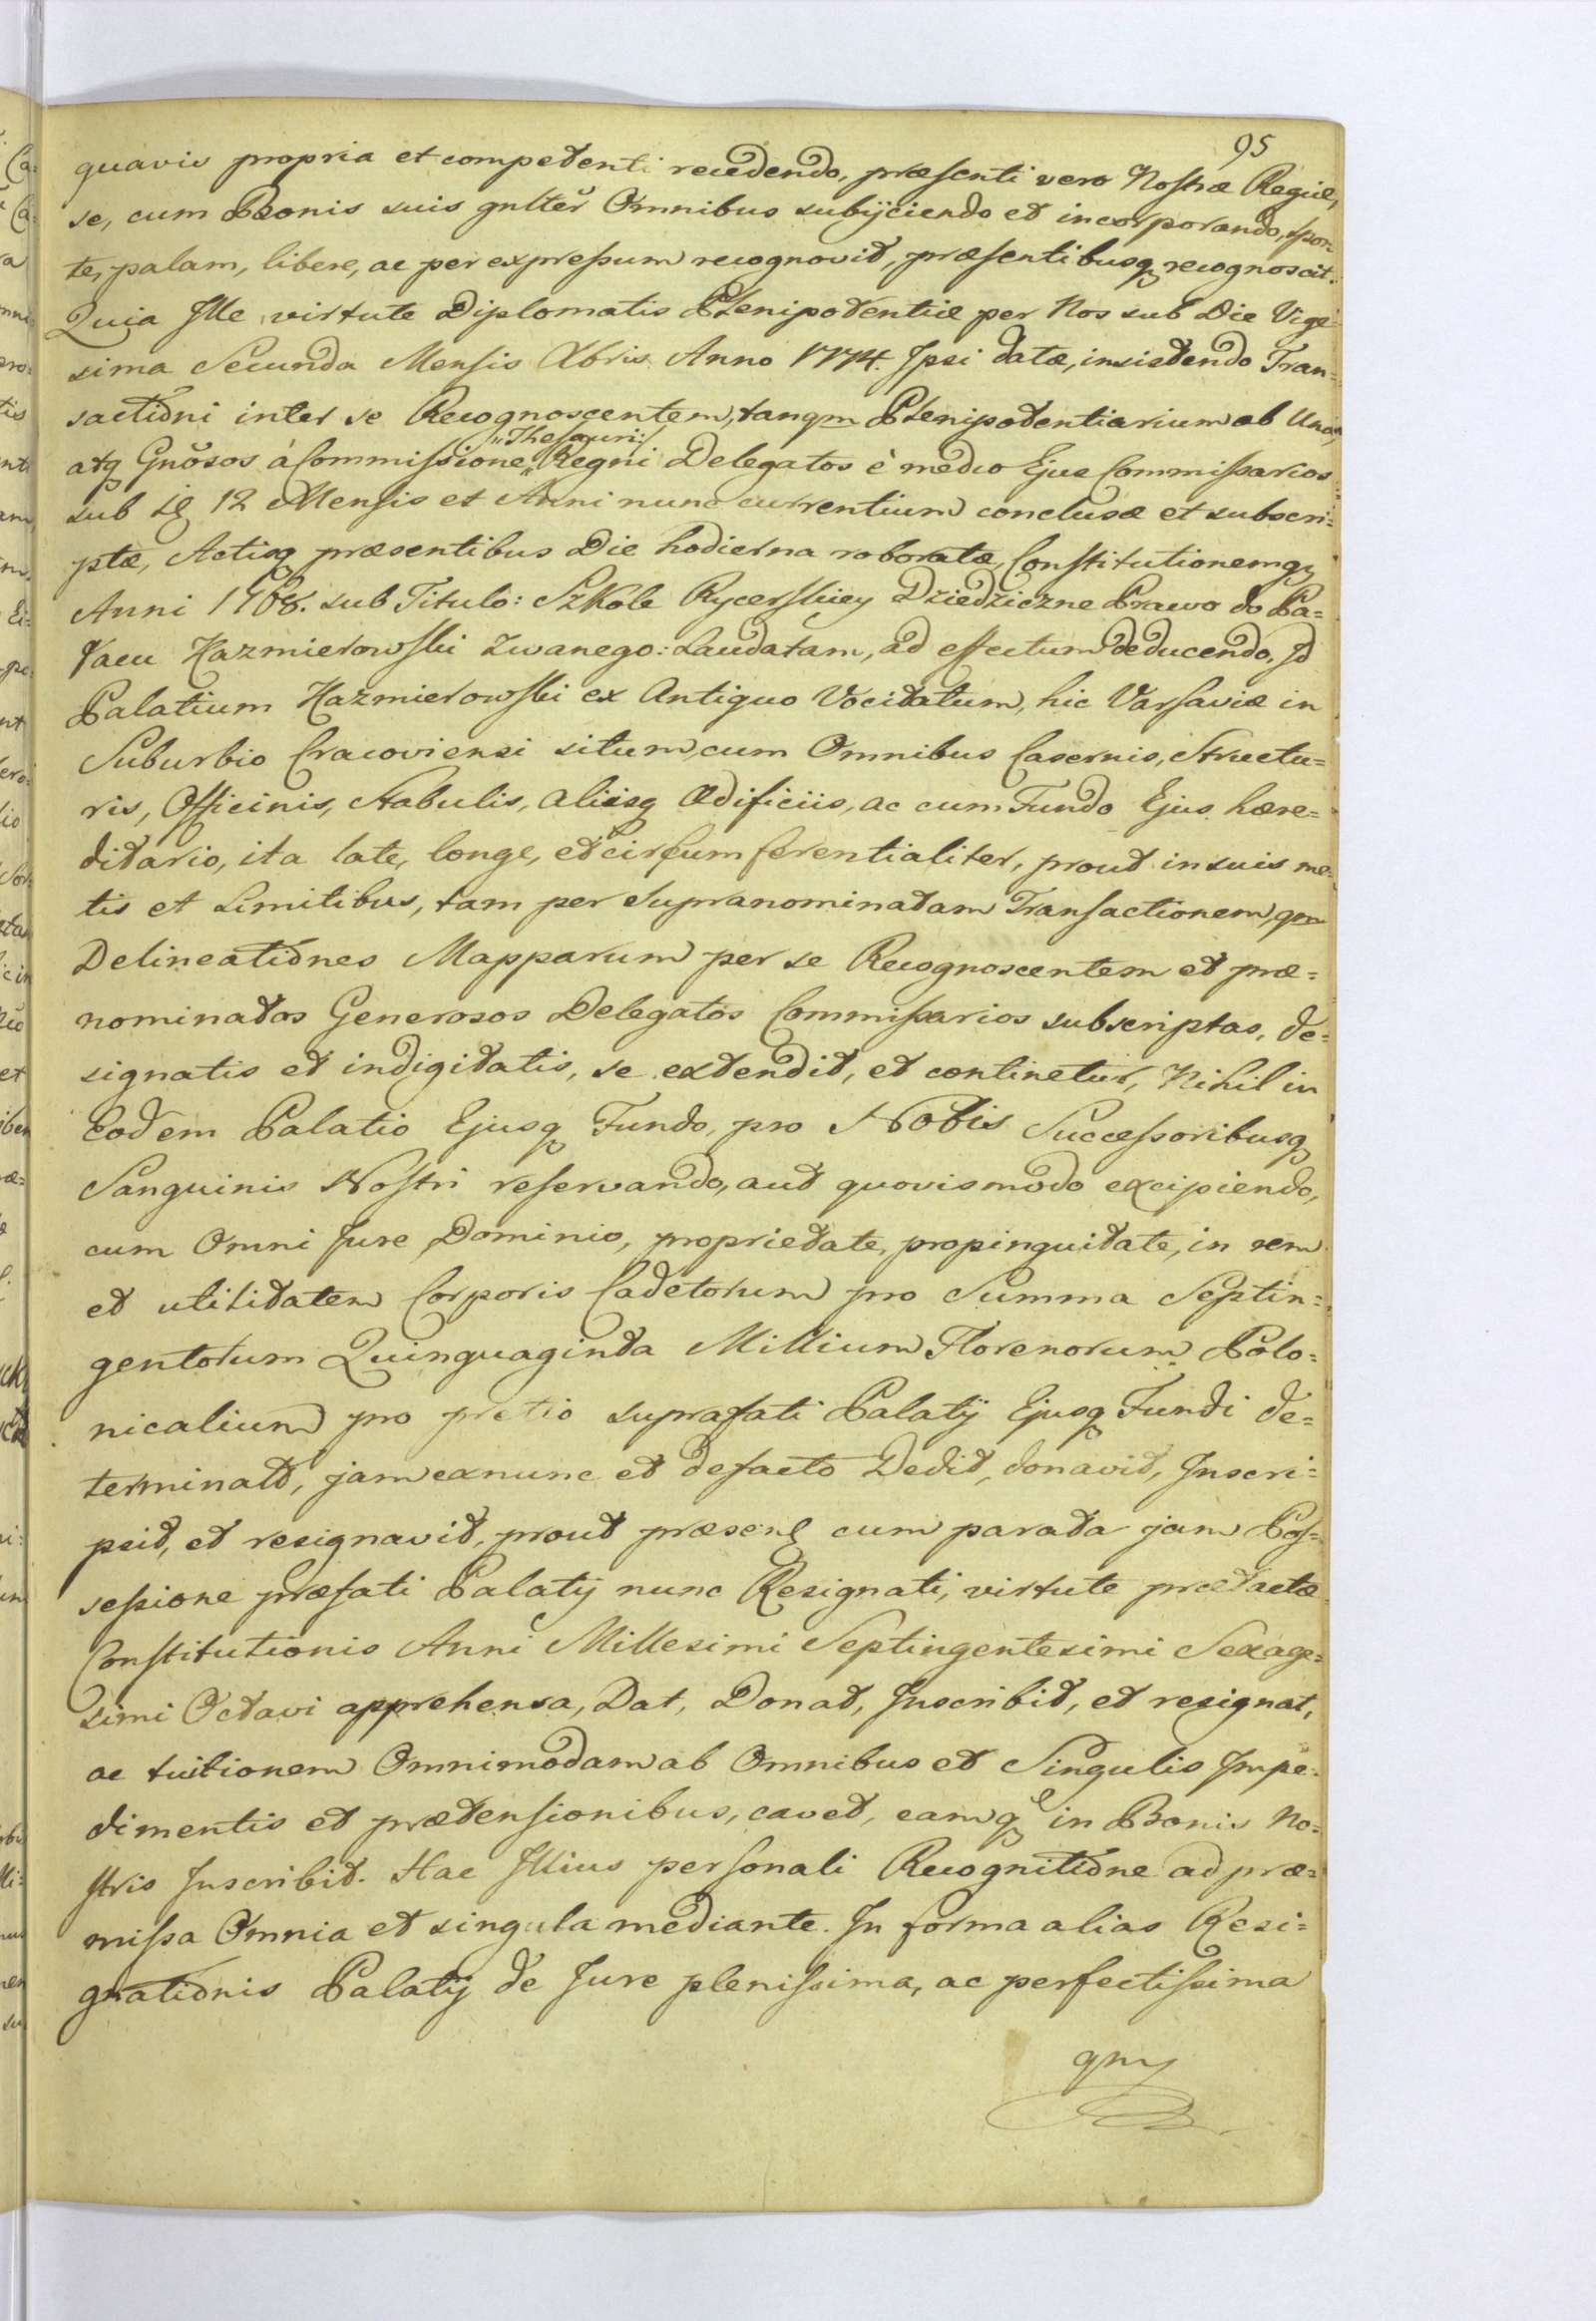 95
quavis propria et competenti recedendo, præsenti vero Nostræ Regiæ,
se, cum Bonis suis gnltěr Omnibus subijciendo et incorporando, spon
te, palam, libere, ac per expressum recognovit, præsentibusq recognoscit.
Quia Ille virtute Diplomatis Plenipotentiæ per Nos sub Die Vige=
sima Secunda Mensis Xbris Anno 1774. Ipsi datæ, insistendo Tran=
sactioni inter se Recognoscentem, tanqm Plenipotentiarium ab Una,
atq Gnősos à Commissione Regni Delegatos è medio Ejus Commissarios
"Thesauri:/
sub die 12 Mensis et Anni nunc currentium conclusæ et subscri=
ptæ, Actisq præsentibus Die hodierna roboratæ, Constitutionemq
Anni 1768. sub Titulo: Szkole Rycerskiey Dziedziczne Prawo do Pa=
łacu Kazmierowski zwanego: Laudatam, ad effectum deducendo, Id
Palatium Kazmierowski ex Antiquo Vocitatum, hic Varsaviæ in
Suburbio Cracoviensi situm, cum Omnibus Casernis, Structu=
ris, Officinis, Stabulis, aliisq Ædificiis, ac cum Fundo Ejus hære=
ditario, ita late, longe, et circumferentialiter, prout in suis me=
tis et Limitibus, tam per Supranominatam Transactionem, qm
Delineationes Mapparum per se Recognoscentem et præ=
nominatos Generosos Delegatos Commissarios subscriptas, de=
signatis et indigitatis, se extendit, et continetur, Nihil in
Eodem Palatio Ejusq Fundo, pro Nobis Successoribusq
Sanguinis Nostri reservando, aut quovismodo excipiendo,
cum Omni Jure Dominio, proprietate, propinquitate, in rem
et utilitatem Corporis Cadetorum pro Summa Septin=
gentorum Quinquaginta Millium Florenorum Polo=
nicalium pro pretio suprafati Palatij Ejusq Fundi de=
terminato, jam exnunc et defacto Dedit, donavit, Inscri=
psit, et resignavit, prout præsentr cum parata jam Pos=
sessione præfati Palatij nunc Resignati, virtute prætactæ
Constitutionis Anni Millesimi Septingentesimi Sexage=
simi Octavi apprehensa, Dat, Donat, Inscribit, et resignat,
ac tuitionem Omnimodam ab Omnibus et Singulis Impe=
dimentis et prætensionibus, cavet, eamq in Bonis No=
stris Inscribit. Hac Illius personali Recognitione ad præ=
missa Omnia et singula mediante. In forma alias Resi=
gnationis Palatij de Jure plenissima, ac perfectissima